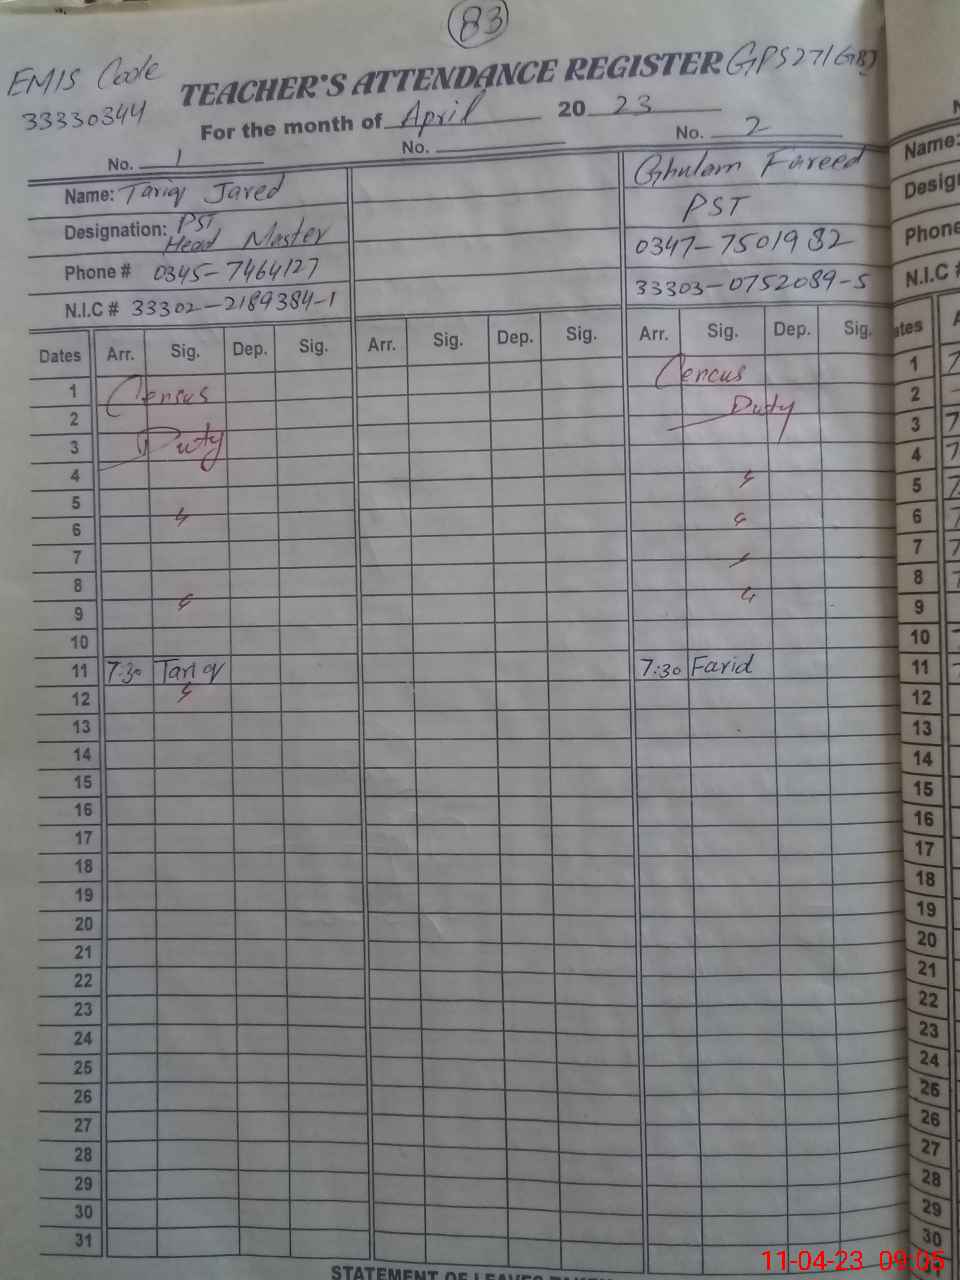 83
EMIS Code
33330344
TEACHER'S ATTENDANCE REGISTER GPS 271/GB
For the month of April 20 23
No. 1 No. No. 2
Name: Tariq Javed
Designation: PST
Head Master
Phone # 0345-7464127
N.I.C # 33302-2189384-1
Ghulam Fareed
PST
0347-7501982
33303-0752089-5
Dates Arr. Sig. Dep. Sig. Arr. Sig. Dep. Sig. Arr. Sig. Dep. Sig.
1 Census Cencus
2 Duty
3 Duty
4
5
6
7
8
9
10
11 7:30 Tariq 7:30 Farid
12
13
14
15
16
17
18
19
20
21
22
23
24
25
26
27
28
29
30
31
STATEMENT OF LEAVES TAKEN
Name:
Desig
Phone
N.I.C #
ates
1
2
3
4
5
6
7
8
9
10
11
12
13
14
15
16
17
18
19
20
21
22
23
24
25
26
27
28
29
30
11-04-23 09:05